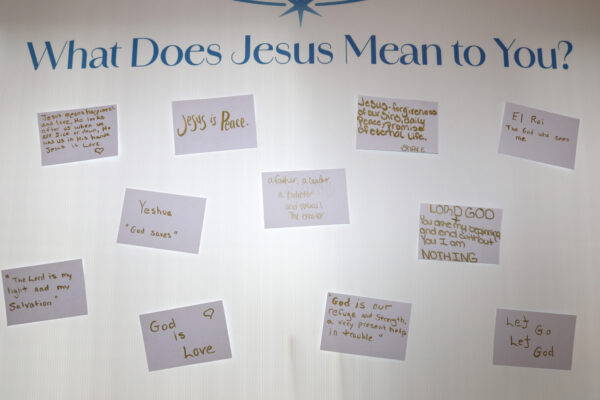 What Does Jesus Mean to You?
Jesus means happiness
and love, He looks
after us when we
are sick or down, He
has us in His hands
Jesus is Love.
Jesus is Peace.
Jesus-forgiveness
of our sins, daily
Peace, Promise
of eternal life.
El Roi
The God who sees
me
Yeshua
"God saves"
a father, a leader,
a
and
The creator
LORD GOD
You are my beginning
and end without
You I am
NOTHING
"The Lord is my
light and my
Salvation"
God
is
Love
"God is our
refuge and strength,
a very present help
in trouble"
Let Go
Let
God